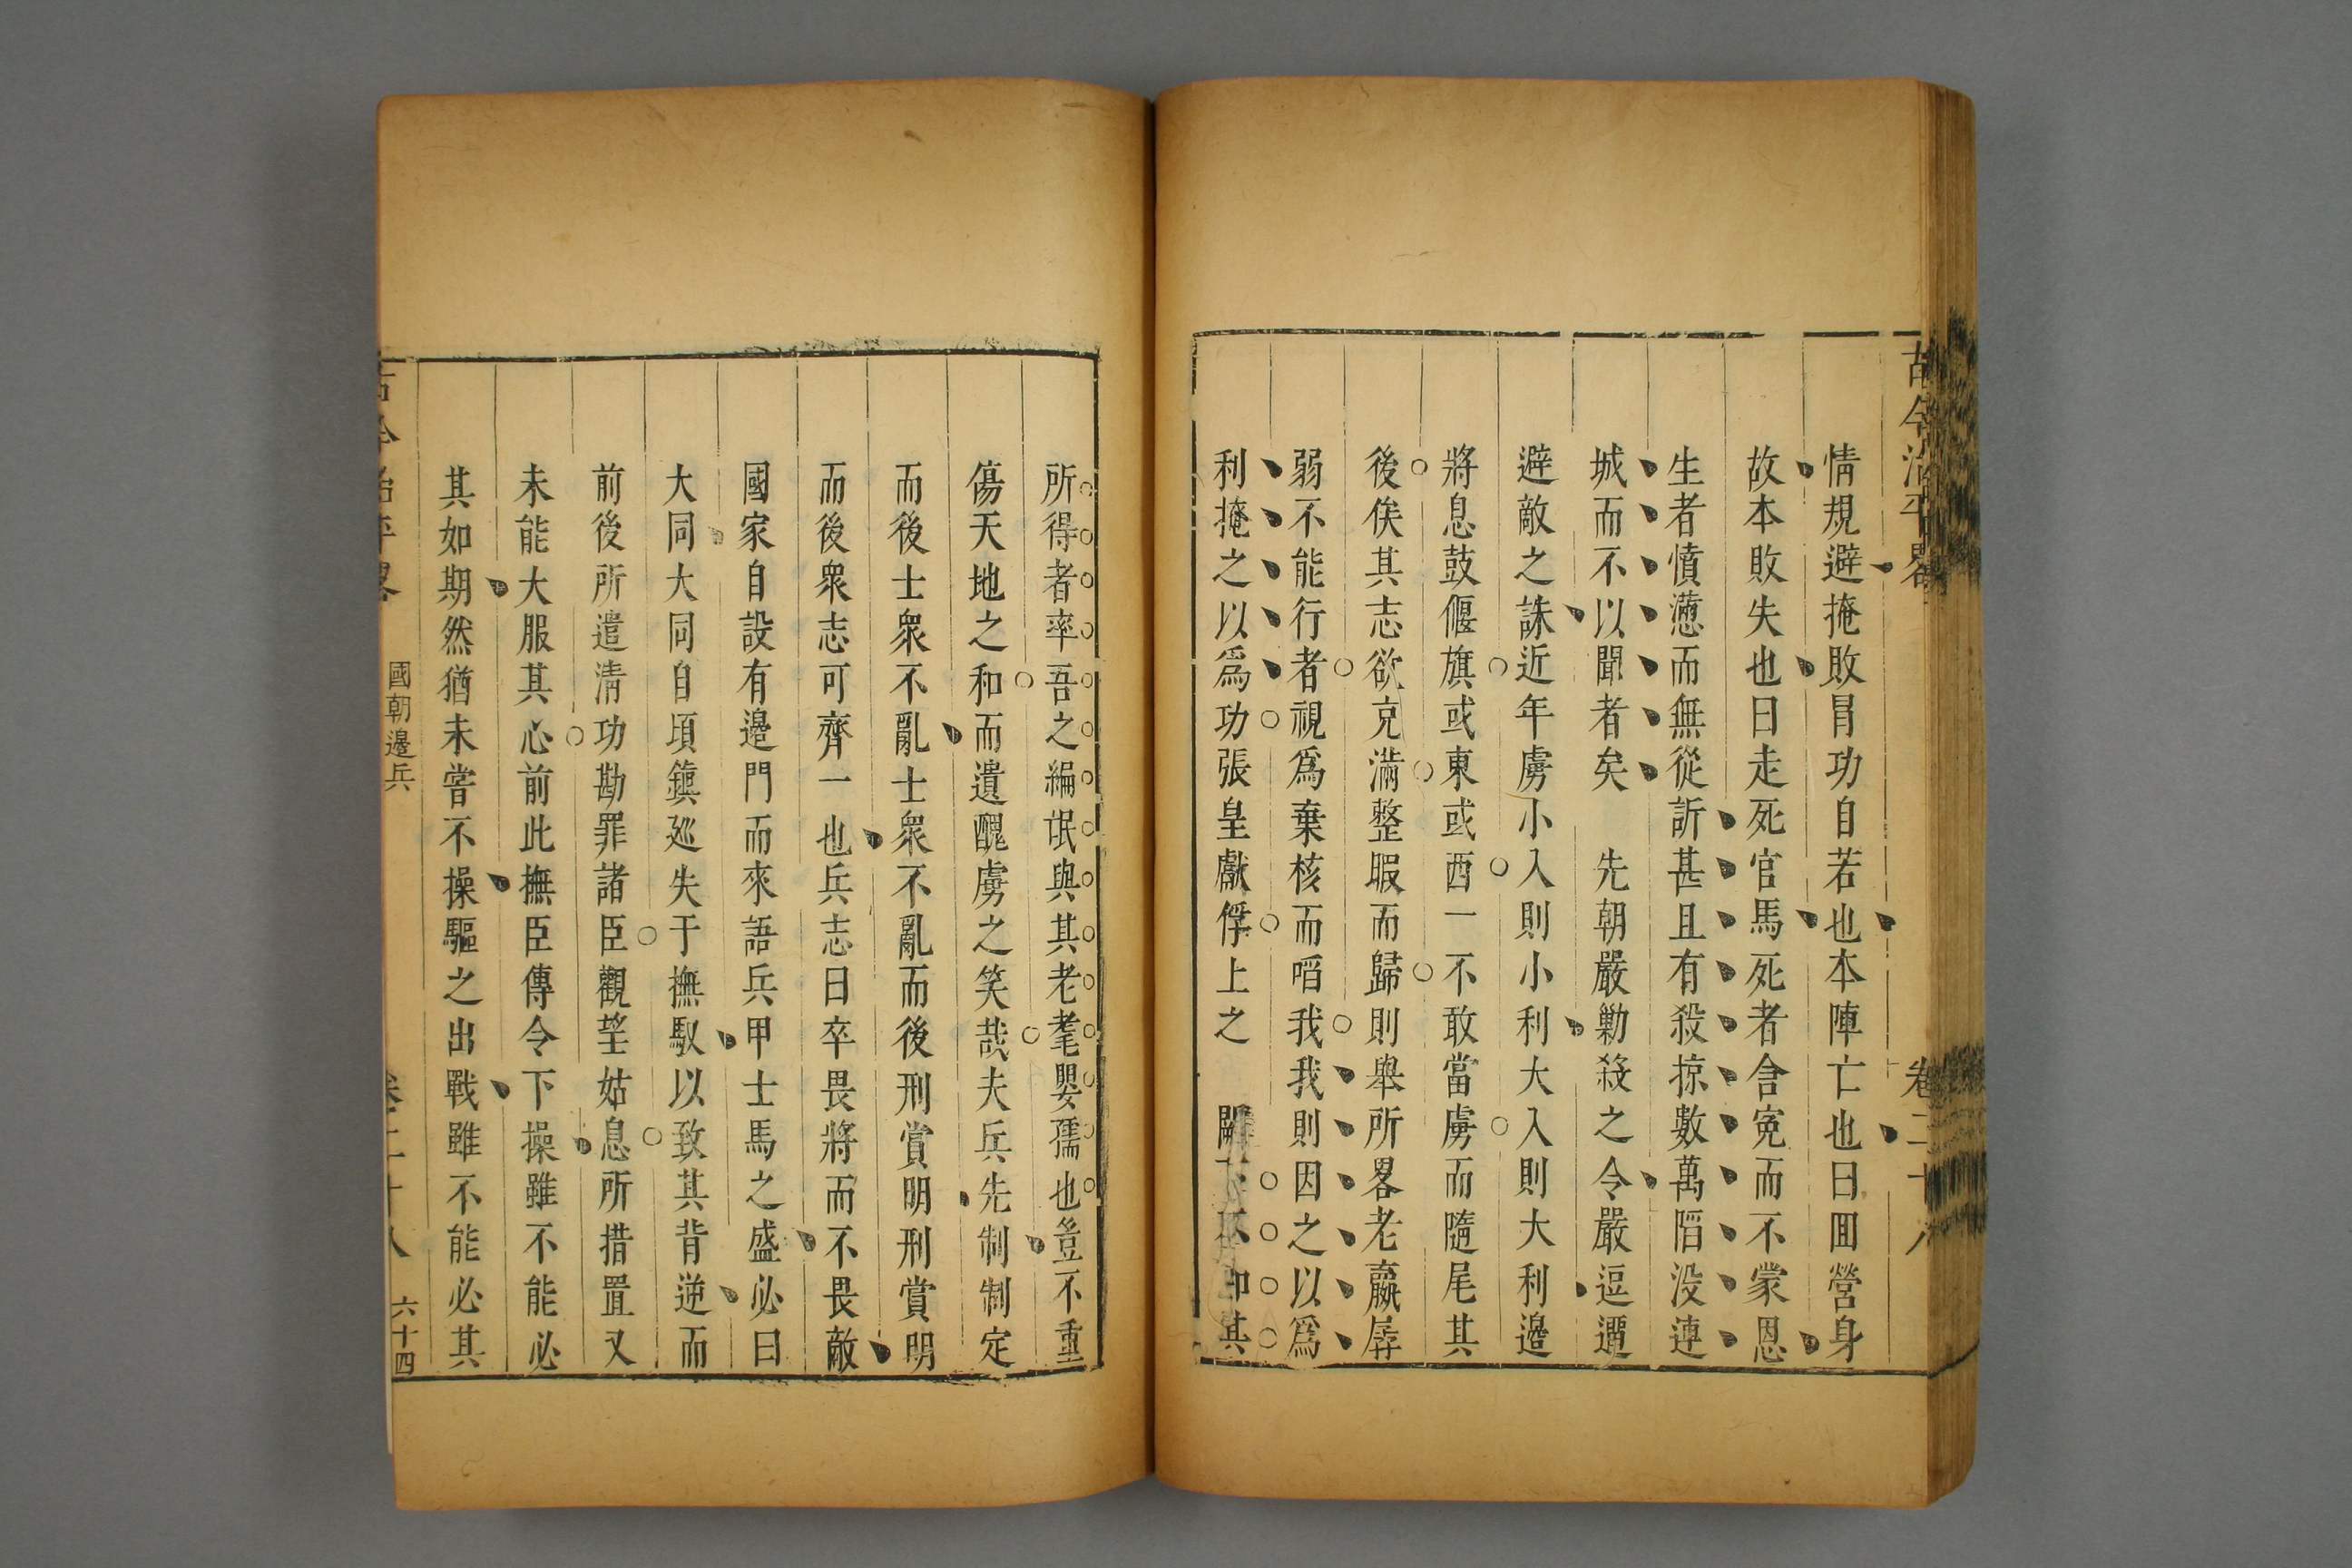 古今治平畧
卷二十八
情規避掩敗冐功自若也本陣亡也曰囬營身
故本敗失也曰走死官馬死者含寃而不蒙恩
生者憤懣而無從訢甚且有殺掠數萬陷没連
城而不以聞者矣　先朝嚴勦殺之令嚴逗遛
避敵之誅近年虜小入則小利大入則大利邉
將息鼓偃旗或東或西一不敢當虜而隨尾其
後俟其志欲克滿整暇而歸則舉所畧老羸孱
弱不能行者視爲棄核而啗我我則因之以爲
利掩之以爲功張皇獻俘上之　闕下不即其
所得者率吾之編氓與其老耄嬰孺也豈不重
傷天地之和而遺醜虜之笑哉夫兵先制制定
而後士衆不亂士衆不亂而後刑賞明刑賞明
而後衆志可齊一也兵志曰卒畏將而不畏敵
國家自設有邉門而來語兵甲士馬之盛必曰
大同大同自頃鎮廵失于撫馭以致其背逆而
前後所遣清功勘罪諸臣觀望姑息所措置又
未能大服其心前此撫臣傳令下操雖不能必
其如期然猶未嘗不操驅之出戰雖不能必其
古今治平畧
國朝邉兵
卷二十八
六十四